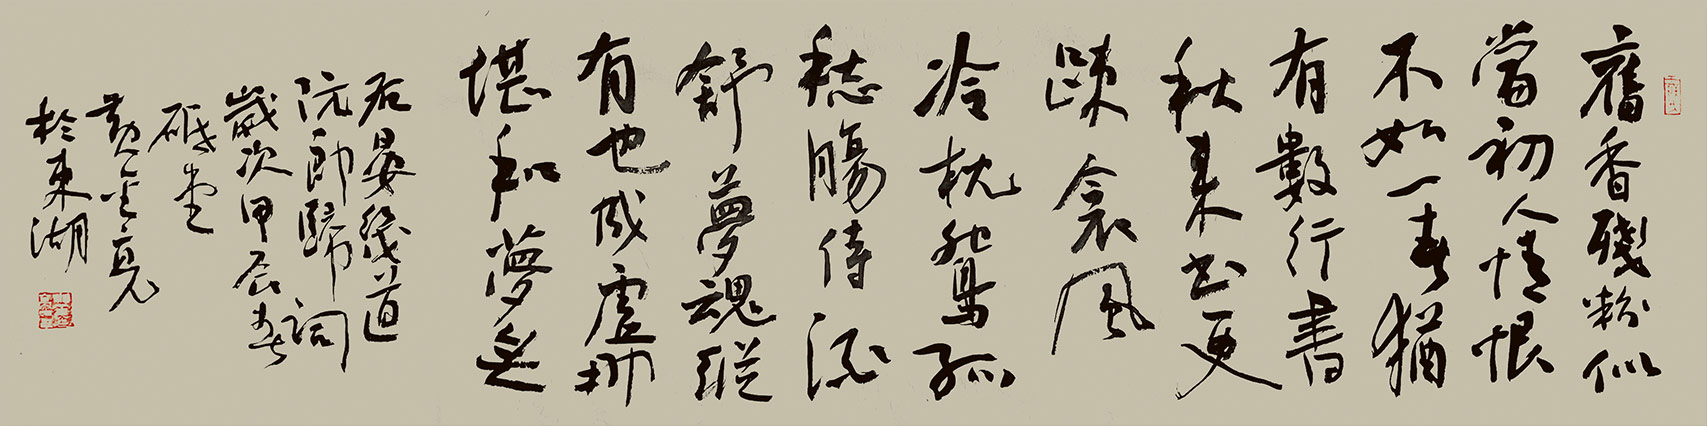 舊香殘粉似
當初人情恨
不如一春猶
有數行書
秋來书更
疎衾風
冷枕鴛孤
愁腸待酒
舒夢魂縱
有也成虛那
堪和夢無
右晏幾道
阮郎歸詞
歲次甲辰春
堂
黃金亮
於東湖